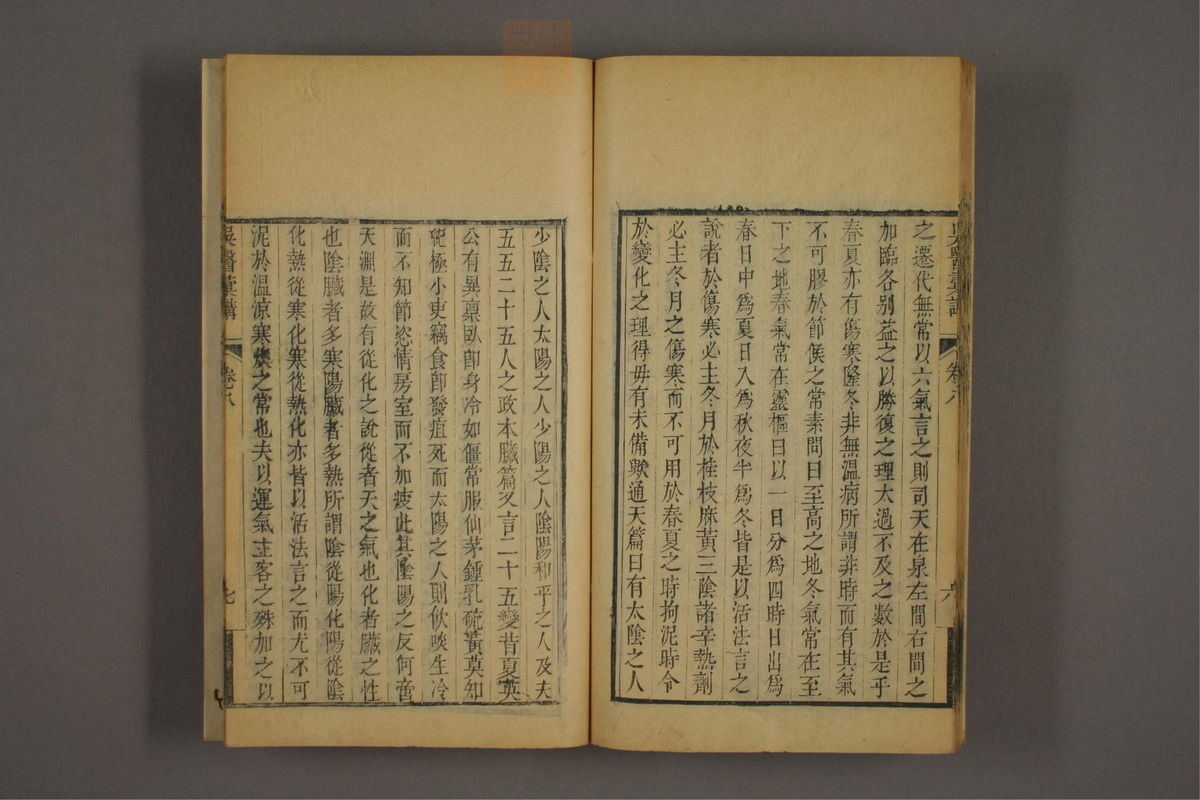 吳醫彙講
卷八
六
之遷代無常以六氣言之則司天在泉左間右間之
加臨各别益之以勝復之理太過不及之數於是乎
春夏亦有傷寒隆冬非無溫病所謂非時而有其氣
不可膠於節候之常素問曰至高之地冬氣常在至
下之地春氣常在靈樞曰以一日分爲四時日出爲
春日中爲夏日入爲秋夜半爲冬皆是以活法言之
說者於傷寒必主冬月於桂枝麻黃三陰諸辛熱劑
必主冬月之傷寒而不可用於春夏之時拘泥時令
於變化之理得毋有未備歟通天篇曰有太陰之人
少陰之人太陽之人少陽之人陰陽和平之人及夫
五五二十五人之政本臟篇又言二十五變昔夏英
公有異禀臥卽身冷如僵常服仙茅鍾乳硫黃莫知
紀極小吏竊食卽發疽死而太陽之人則飲啖生冷
而不知節恣情房室而不加疲此其陰陽之反何啻
天淵是故有從化之說從者天之氣也化者臟之性
也陰臟者多寒陽臟者多熱所謂陰從陽化陽從陰
化熱從寒化寒從熱化亦皆以活法言之而尤不可
泥於溫涼寒燠之常也夫以運氣主客之殊加之以
吳醫彙講
卷八
七